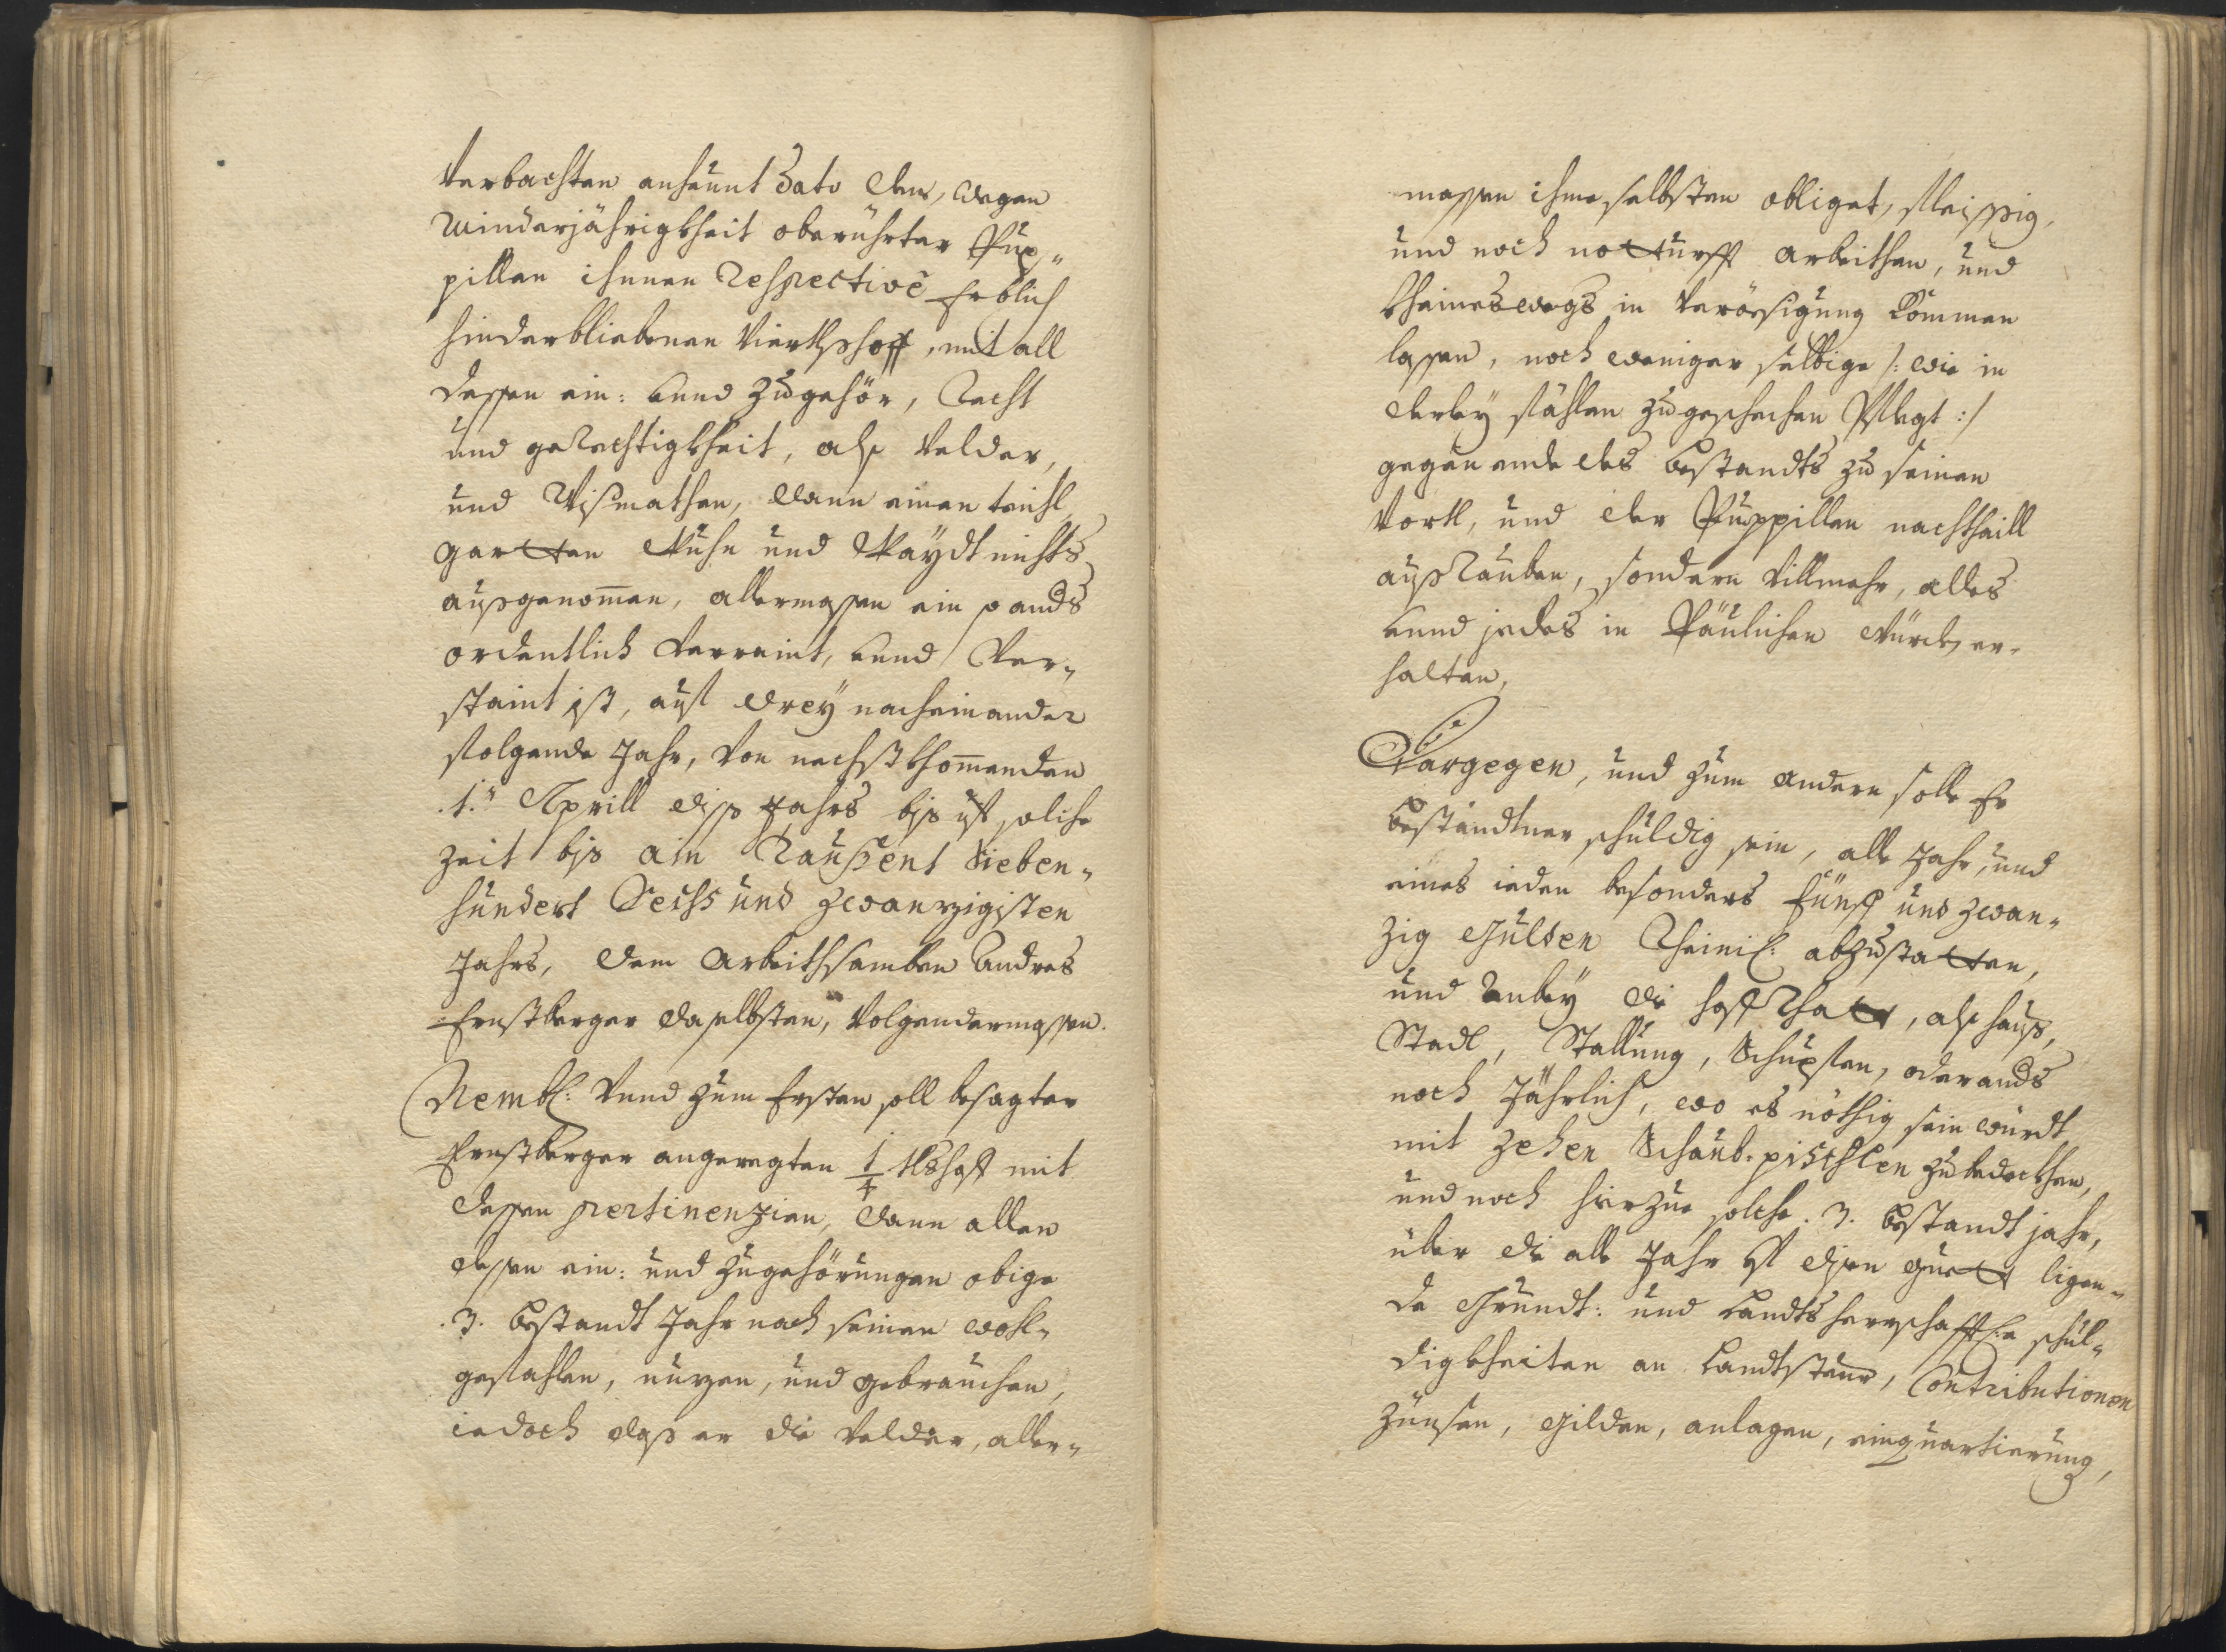 Verbachten anheunt Dato den, wegen
Minderjährigkheit oberührter Pup„
pillen ihnnen Respective Erblich
hinderbliebenen Viertlshoff, mit all
dessen ein: vnnd zuegehör, Recht
und gerechtigkheit, als Velder,
und Wißmathen, dann einen
garten nichts
außgenom̄en, allermassen ein
ordentlich verraint, vnnd Ver„
staint ist, auf drey nacheinander
folgende Jahr, von nechstkhom̄enden
.1. Aprill diß Jahrs bis uf solche
zeit bis ain Taußent Sieben„
hundert Sechs und zwanzigisten
Jahrs, dem Arbeithsamben Andres
Ernstberger daselbsten, Volgendermassen.
Nembl: Vnnd zum Ersten soll besagter
Ernstberger angeregten 1/4 tlshoff mit
dessen pertinenzien, dann allen
dessen ein: und zugehörungen obige
.3. Bestandt Jahr nach seinen wohl„
gefahlen, nuzen, und gebrauchen,
iedoch daß er die Velder, aller„
massen ihme selbsten obliget, fleissig,
und noch notturfft arbeithen, und
kheineswegs in Verösigung kommen
lassen, noch weniger selbige /: wie in
derley fählen zugeschechen Pflegt :/
gegen ende des Bestandts zu seinen
Vortl, und der Puppillen nachtheill
außrauben, sondern Villmehr, alles
vnnd jedes in Päulichen würden er„
halten,
Dargegen, und zum andern solle Er
Beständtner schuldig sein, alle Jahr, und
eines ieden besonders Fünff und zwan„
zig Gulden Rheinl: abzustatten,
und anbey die hoffstatt, als hauß,
Stadl, Stallung, Schupfen, oder
noch Jährlich, wo es nöthig sein wurdt
mit zehen Schaub. pischlen zubedeckhen,
und noch hierzue solche .3. Bestandt jahr,
über die alle Jahr uf disen guett ligen„
de Grundt: und Landtsherrschafftl:e schul„
digkheiten an Landtsteur, Contributionen
zünsen, Gilden, anlagen, einquartierung,